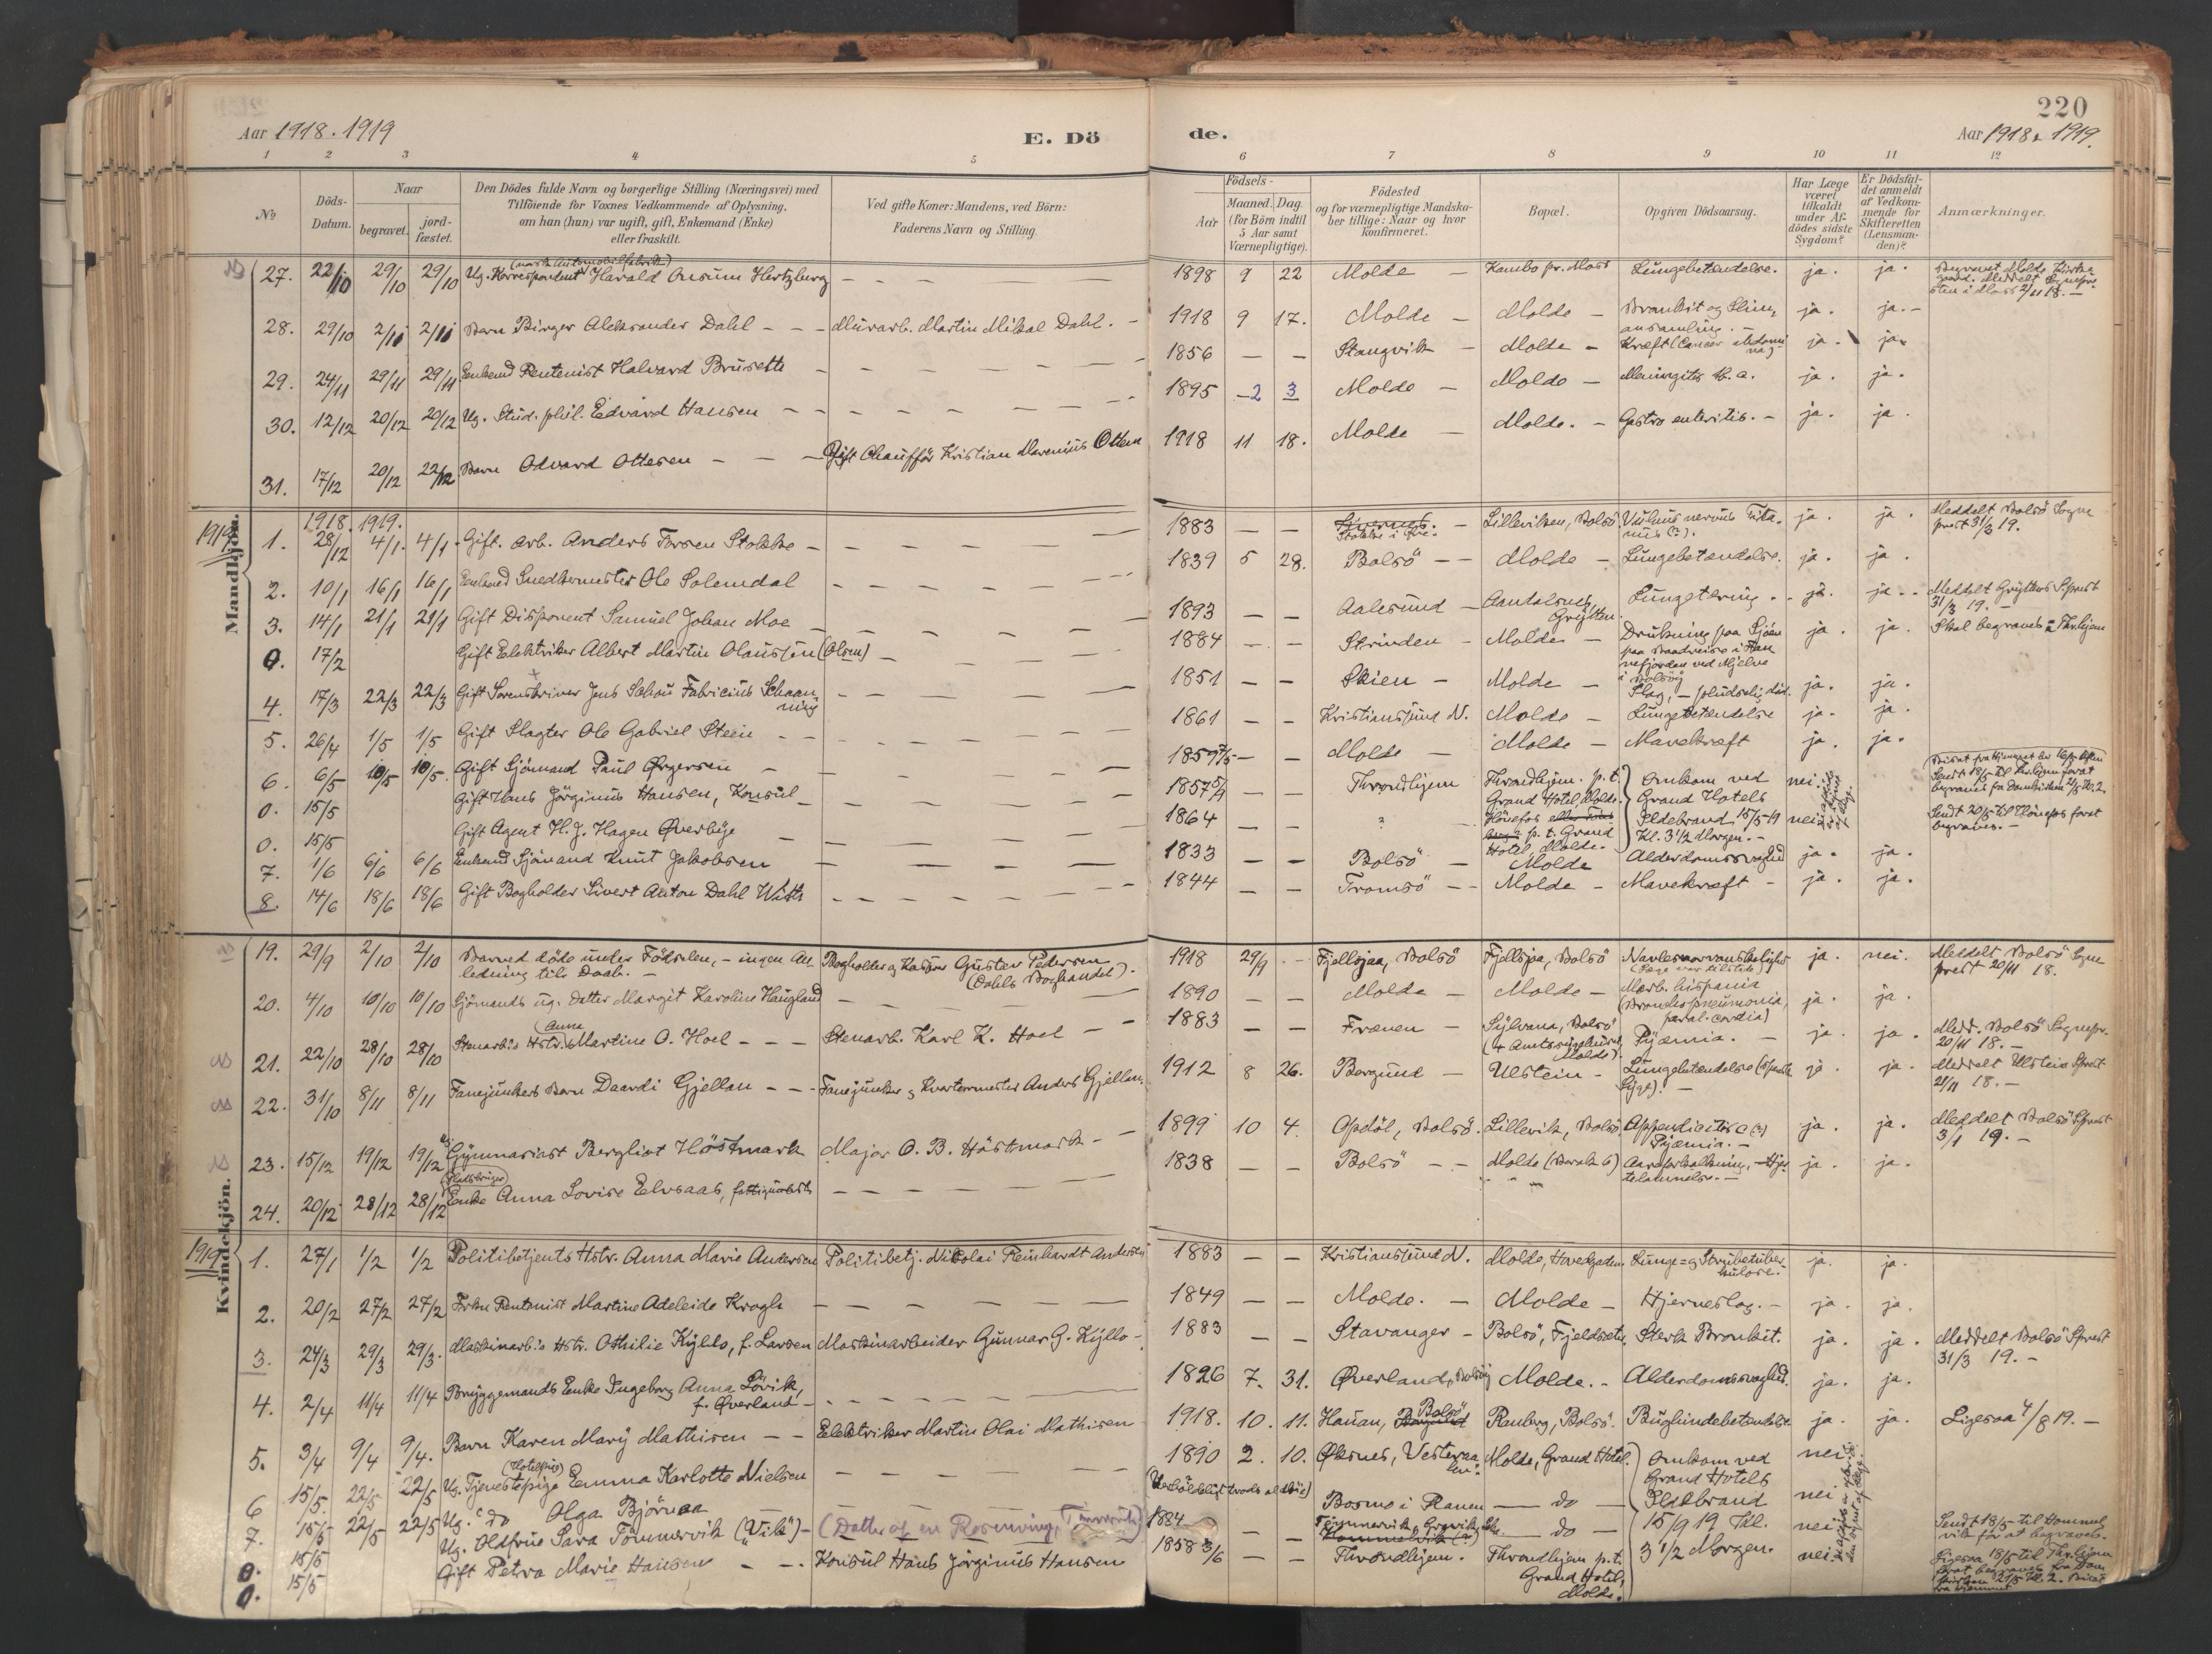 220
Aar 1918. 1919
E. Dö
de.
Aar 1918 & 1919.
1 2 3 4 5 6 7 8 9 10 11 12
No
Döds-Datum.
Naar
begravet.
jord-fæstet.
Den Dödes fulde Navn og borgerlige Stilling (Næringsvei) med
Tilföiende for Voxnes Vedkommende af Oplysning,
om han (hun) var ugift, gift, Enkemand (Enke)
eller fraskilt.
Ved gifte Koner: Mandens, ved Börn:
Faderens Navn og Stilling.
Födsels-
Aar
Maaned. Dag.
(for Börn indtil
5 Aar samt
Værnepligtige).
Födested
og for værnepligtige Mandska-
ber tillige: Naar og hvor
konfirmeret.
Bopæl.
Opgiven Dödsaarsag.
Har Læge
været
tilkaldt
under Af-
dödes sidste
Sygdom?
Er Dödsfal-
det anmeldt
af Vedkom-
mende for
Skifteretten
(Lensman-
den)?
Anmærkninger.
Mandkjön.
27. 22/10 29/10 29/10 Ug. Korrespondent Harald Onsum Hertzberg 1898 9 22 Molde Kambo pr. Moss Lungebetændelse. ja. ja. Begravet Molde
28. 29/10 2/11 2/11 Barn Birger Aleksander Dahl Murarb. Martin Mikal Dahl. 1918 9 17. Molde Molde Bronkit og Slim, ansamling. ja. ja.
29. 24/11 29/11 29/11 Enkemd Rentenist Halvard Brusette 1856 Stangvik Molde Kræft (Cancer ja. ja.
30. 12/12 20/12 20/12 Ug. Stud. phil. Edvard Hansen 1895 2 3 Molde Molde Meningitis ja. ja.
31. 17/12 20/12 22/12 Barn Odvard Ottesen Gift Chaufför Kristian Marenius Ottesen 1918 11 18. Molde Molde. Gastro enteritis. ja. ja.
1919.
1918. 1919.
1. 28/12 4/1. 4/1. Gift. Arb. Anders Torsen Stokke 1883 Lilleviken, Bolsö ja. ja. Meddelt Bolsö Sogneprest 31/3 19.
2. 10/1 16/1 16/1 Enkemd Snedkermester Ole Solemdal 1839 5 28. Bolsö Molde Lungebetændelse. ja. ja.
3. 14/1 21/1 21/1 Gift Disponent Samuel Johan Moe 1893 Aalesund Aandalsnes, Grytten. Lungetæring ja. ja. Meddelt Gryttens Sprest 31/3 19.
0. 17/2 Gift Elektriker Albert Martin Olaussen (Olsen) 1884 Strinden Molde Drukning paa Sjöen ja. ja. Skal begraves i Thr.hjem
4. 17/3 22/3 22/3 Gift Sorenskriver Jens Schou Fabricius Schaanning 1851 Skien Molde Slag, pludselig död. ja. ja.
5. 26/4 1/5 1/5 Gift Slagter Ole Gabriel Stein 1861 Kristianssund N. Molde Lungebetændelse ja. ja.
6. 6/5 10/5 10/5. Gift Sjömand Paul Ørgersen 1859 Molde Molde Mavekræft ja. ja.
0. 15/5 Gift Hans Jörginus Hansen, Konsul 1857 Throndhjem Throndhjem. p.t. Grand Hotel, Molde. Omkom ved Grand Hotels nei.
0. 15/5 Gift Agent H. J. Hagen Øverbye 1864 ? Hönefos p. t. Grand Hotel, Molde. Ildebrand 15/5-19 Kl. 3 1/2 Morgen. nei Sendt 20/5 til Hönefos forat begraves.
7. 1/6 6/6 6/6 Enkemd Sjömand Knut Jakobsen 1833 Bolsö Molde Alderdomssvaghed ja. ja.
8. 14/6 18/6 18/6 Gift Bogholder Sivert Anton Dahl Witte 1844 Tromsö Molde Mavekræft ja. ja.
Kvindekjön.
19. 29/9 2/10 2/10 Barnet döde under Födselen, - ingen Anledning til Daab. Bogholder og Kasserer Gustav Pedersen (Dahls Boghandel). 1918 29/9 Fjellsjaa, Bolsö Fjellsjaa, Bolsö ja. nei. Meddelt Bolsö Sogneprest 20/11 18.
20. 4/10 10/10 10/10 Sjömands ug. datter Margit Karoline Haugland 1890 Molde Molde Morb. hispania (Bronchopneumonia, paral. cordis) ja. ja.
21. 22/10 28/10 28/10 Stenarb.s Hstr. (Anna Martine O. Hoel Stenarb. Karl K. Hoel 1883 Frænen Sylvana, Bolsö (+ Amtssygehuset, Molde). Pyæmia. ja. ja. Medd. Bolsö Sognepr. 20/11 18.
22. 31/10 8/11 8/11 Fanejunkers Barn Daardi Gjellan Fanejunker & Kvartermester Anders Gjellan. 1912 8 26. Borgund Ulstein Lungebetændelse (Spanske Syge). ja. ja. Meddelt Ulstein Sprest 21/11 18.
23. 15/12 19/12 19/12 Gymnasiast Bergliot Höstmark Major O. B. Höstmark 1899 10 4. Opdöl, Bolsö. Lillevik, Bolsö. Appendicitis (?) Pyæmia. ja. ja. Meddelt Bolsö Sprest 3/1 19.
24. 20/12 28/12 28/12 Enke Anna Lovise Elvsaas, fattigunderst. 1838 Bolsö Molde (Barak 6) Aareforkalkning, ja. ja.
1919
1. 27/1 1/2 1/2 Politibetjents Hstr. Anna Marie Andersen Politibetj. Nikolai Reinhardt Andersen 1883 Kristianssund N. Molde, Hovedgaden. Lunge= og Strubetuberkulose. ja. ja.
2. 20/2 27/2 27/2 Frkn Rentenist Martine Adeleide Krogh 1849 Molde. Molde Hjerneslag. ja. ja.
3. 24/3 29/3 29/3. Maskinarb.s Hstr. Othilie Kyllo, f. Larsen Maskinarbeider Gunnar G. Kyllo 1883 Stavanger Bolsö, Fjeldsetr. Sterk Bronkit. ja. ja. Meddelt Bolsö Sprest 31/3 19.
4. 2/4 11/4 11/4 Bryggemands Enke Ingeborg Anna Lövik, f. Øverland 1826 7. 31. Øverland, Molde. Alderdomssvaghed. ja. ja.
5. 3/4 9/4 9/4. Barn Karen Mary Mathisen Elektriker Martin Olai Mathisen 1918. 10. 11. Hauan, Bolsö Renberg, Bolsö. Bughindebetændelse ja. ja. Ligesaa 4/8 19.
6 15/5. 22/5 22/5 Ug. Tjenestepige (Hotelpige) Emma Karlotte Nielsen 1890 2. 10. Øksnes, Vesteraalen. Molde, Grand Hotel. Omkom ved Grand Hotels nei
7. 15/5 22/5 22/5 Ug. do Olga Björnaa Bosmo i Ranen do Ildebrand nei
0. 15/5 Ug. Oldfrue Sara Tömmervik ("Vik") (Datter af en 1884 do 15/5 19 Kl. nei Sendt 18/5 til Hommelvik for at begraves.
0. 15/5 Gift Petra Marie Hansen Konsul Hans Jörginus Hansen 1858 3/6 Throndhjem. Throndhjem p.t. Grand Hotel, Molde. 3 1/2 Morgen. nei. Ligesaa 18/5 til Thr.hjem